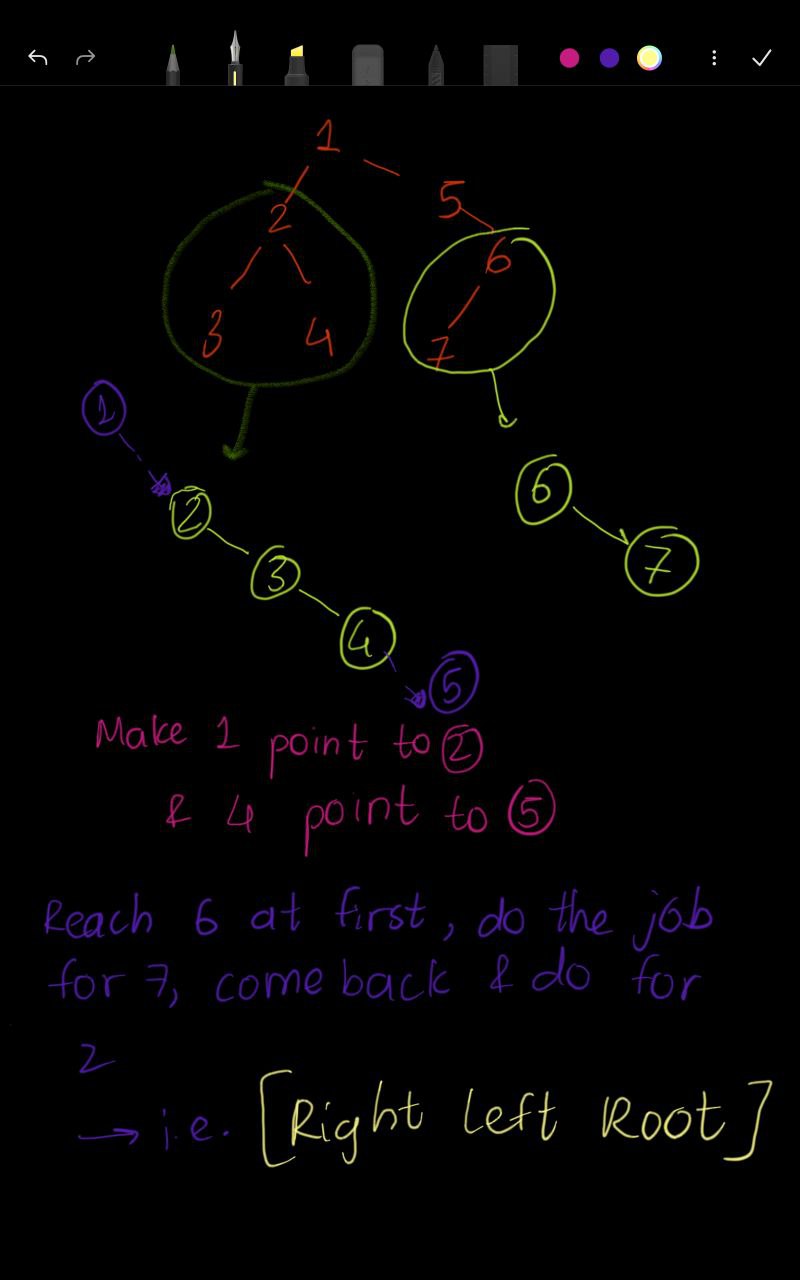 1
5
2
6
3 4
7
1
2
6
3
7
4
5
Make 1 point to 2
& 4 point to 5
Reach 6 at first, do the job
for 7, come back & do for
2
→ i.e. [Right Left Root]